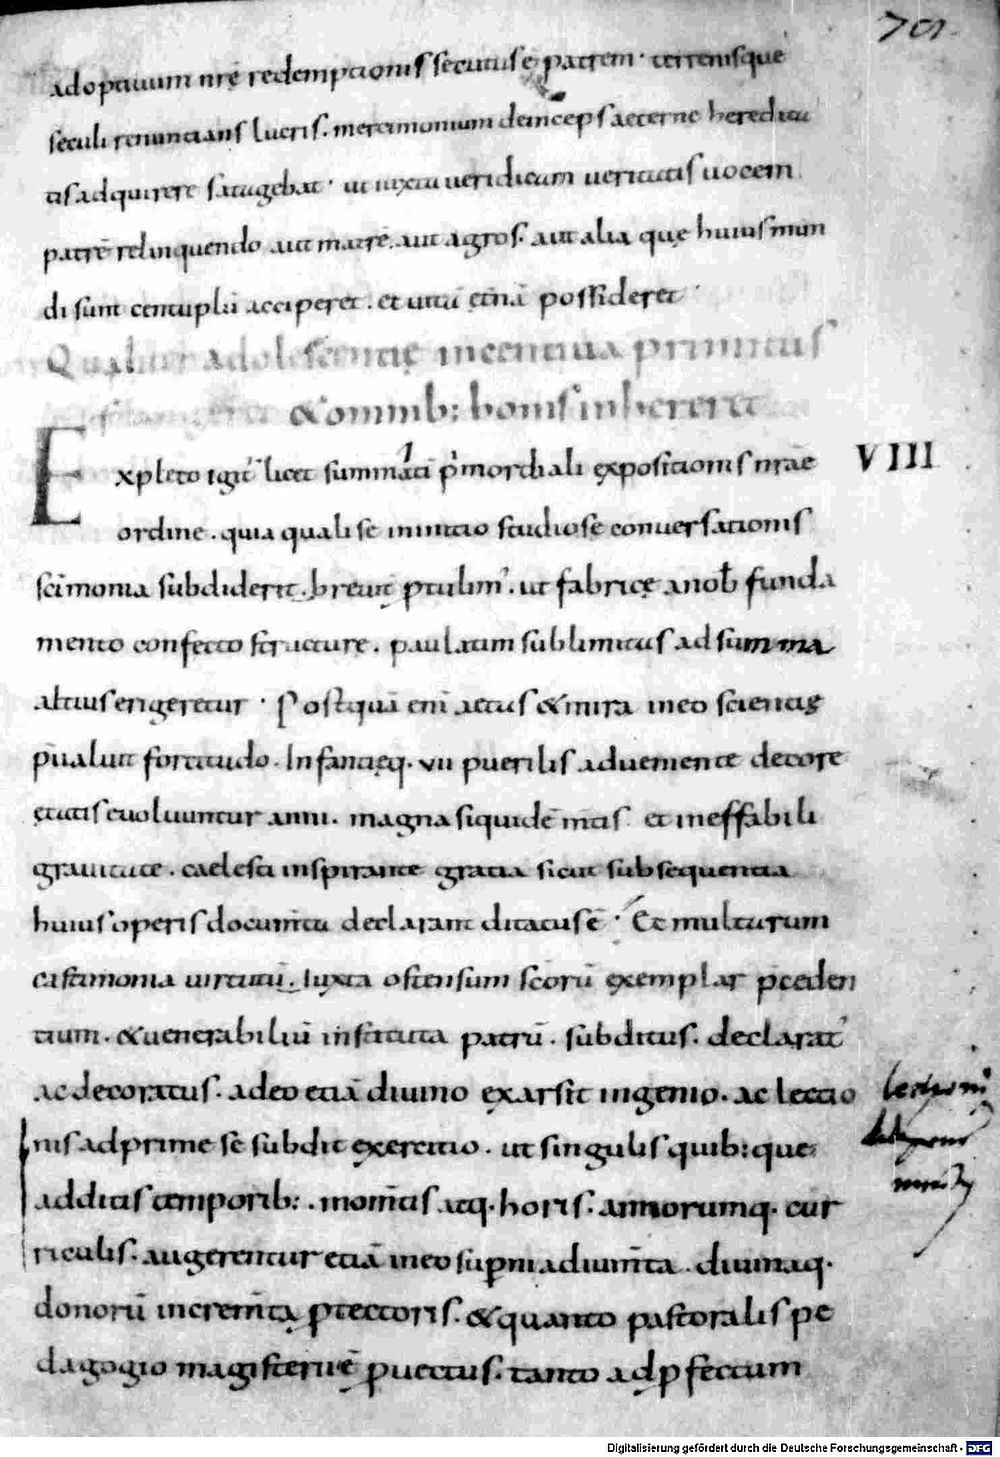 701.
adoptiuum nrę redemptionis secutus ē patrem · terrenisque
seculi renuntians lucris. mercimonium deinceps aeternę heredita
tis adquirere satagebat · ut iuxta ueridicam ueritatis uocem
patrē relinquendo aut matrē. aut agros. aut alia quę huius mun
di sunt centuplū acciperet. et uitā ętnā possideret ·
Qualiter adolescentię incentiua primitus
& omnib: bonis inhereret
Expleto igit licet summati pmordiali expositionis nrae VIII
ordine. quia quali se in initio studiose conuersationis
scimonia subdiderit. breuit ptulim'. ut fabricę a nob funda
mento confecto structure. paulatim sublimitus ad summa
altius erigeretur · Postquā eni actus & mira in eo scientię
pualuit fortitudo. Infantięq. VII puerilis adueniente decore
ętatis euoluuntur anni. magna siquidē mtis et ineffabili
grauitate. caelesti inspirante gratia sicut subsequentia
huius operis documta declarant ditatus ē · Et multarum
castimonia uirtutū. Iuxta ostensum scorū exemplar pceden
tium. & uenerabiliū instituta patrū. subditus. declarat
ac decoratus. adeo etiā diuino exarsit ingenio. ac lectio
nis adprime se subdit exercitio. ut singulis quib:que
additis temporib:. momtis atq. horis. annorumq. cur
riculis. augerentur etiā in eo supni adiumta. diuinaq.
donorū incremta ptectoris. & quanto pastoralis pe
dagogio magisterii ē puectus. tanto ad pfectum
Digitalisierung gefördert durch die Deutsche Forschungsgemeinschaft - DFG